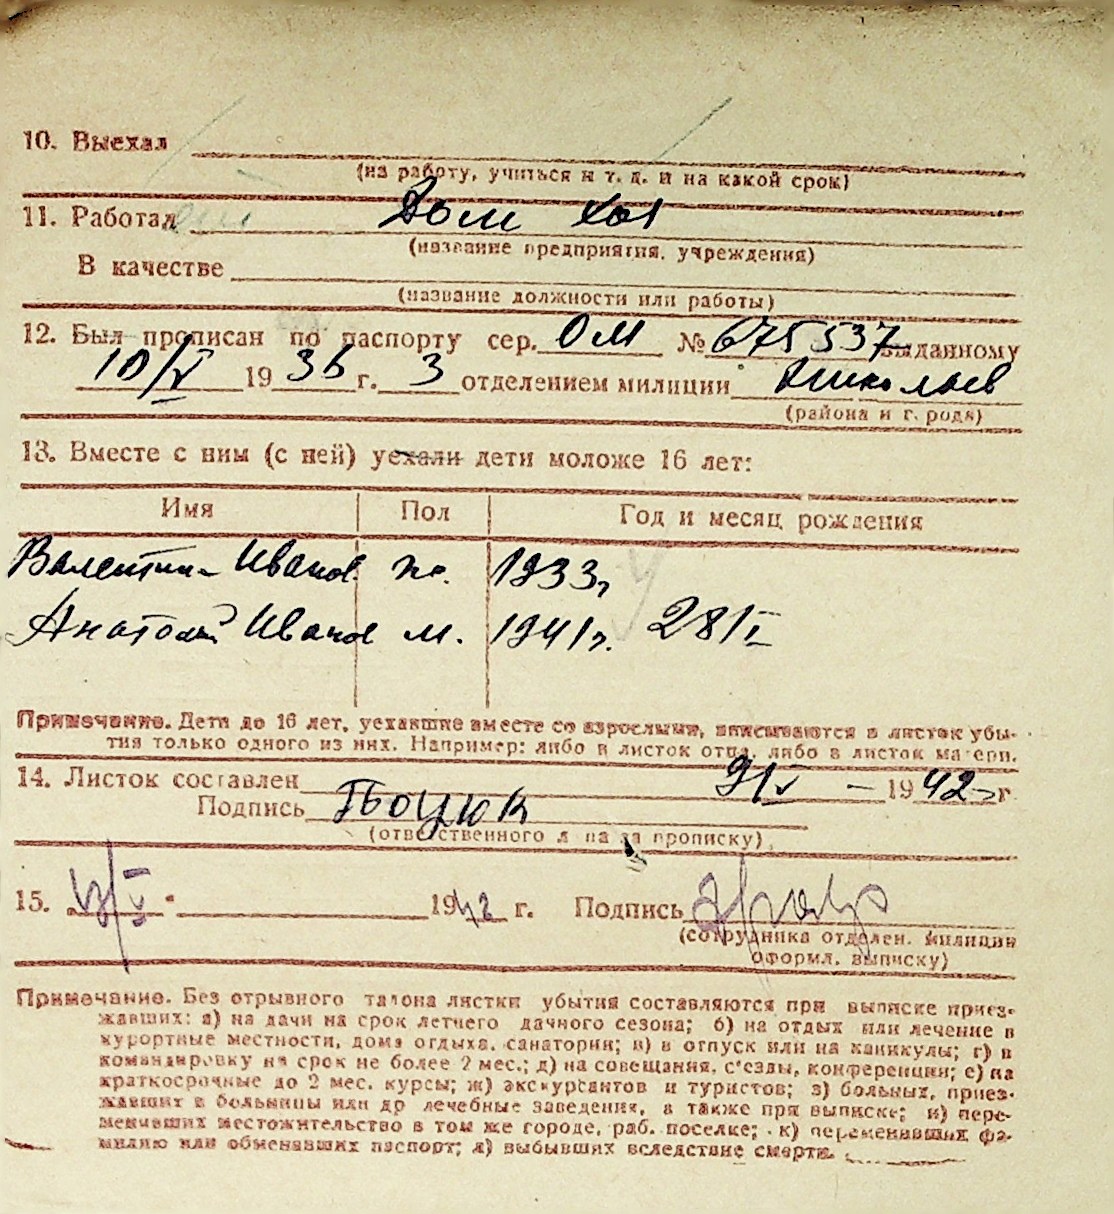 10. Выехал
(на работу, учиться и т. д. и на какой срок)
11. Работал Дом хоз
(название предприятия, учреждения)
В качестве
(название должности или работы)
12. Был прописан по паспорту сер. ОМ № 675537 выданному
10/V 1936 г. 3 отделением милиции Николаев
(района и города)
13. Вместе с ним (с ней) уехали дети моложе 16 лет:
Имя Пол Год и месяц рождения
Валентин Иванов. 1933г
Анатолий Иванов м. 1941г. 28/I
Примечание. Дети до 16 лет, уехавшие вместе со взрослыми, вписываются в листок убы-
тия только одного из них. Например: либо в листок отца, либо в листок матери.
14. Листок составлен 9/V 1942 г
Подпись
(ответственного лица за прописку)
15. 1942 г. Подпись
(сотрудника отделен. милиции
оформл. выписку)
Примечание. Без отрывного талона листки убытия составляются при выписке приез-
жавших: а) на дачи на срок летнего дачного сезона; б) на отдых или лечение в
курортные местности, дома отдыха, санатории; в) в отпуск или на каникулы; г) в
командировку на срок не более 2 мес.; д) на совещания, с'езды, конференции; е) на
краткосрочные до 2 мес. курсы; ж) экскурсантов и туристов; з) больных, приез-
жавших в больницы или др лечебные заведения, а также при выписке; и) пере-
менивших местожительство в том же городе, раб. поселке; к) переменивших фа-
милию или обменявших паспорт; л) выбывших вследствие смерти.